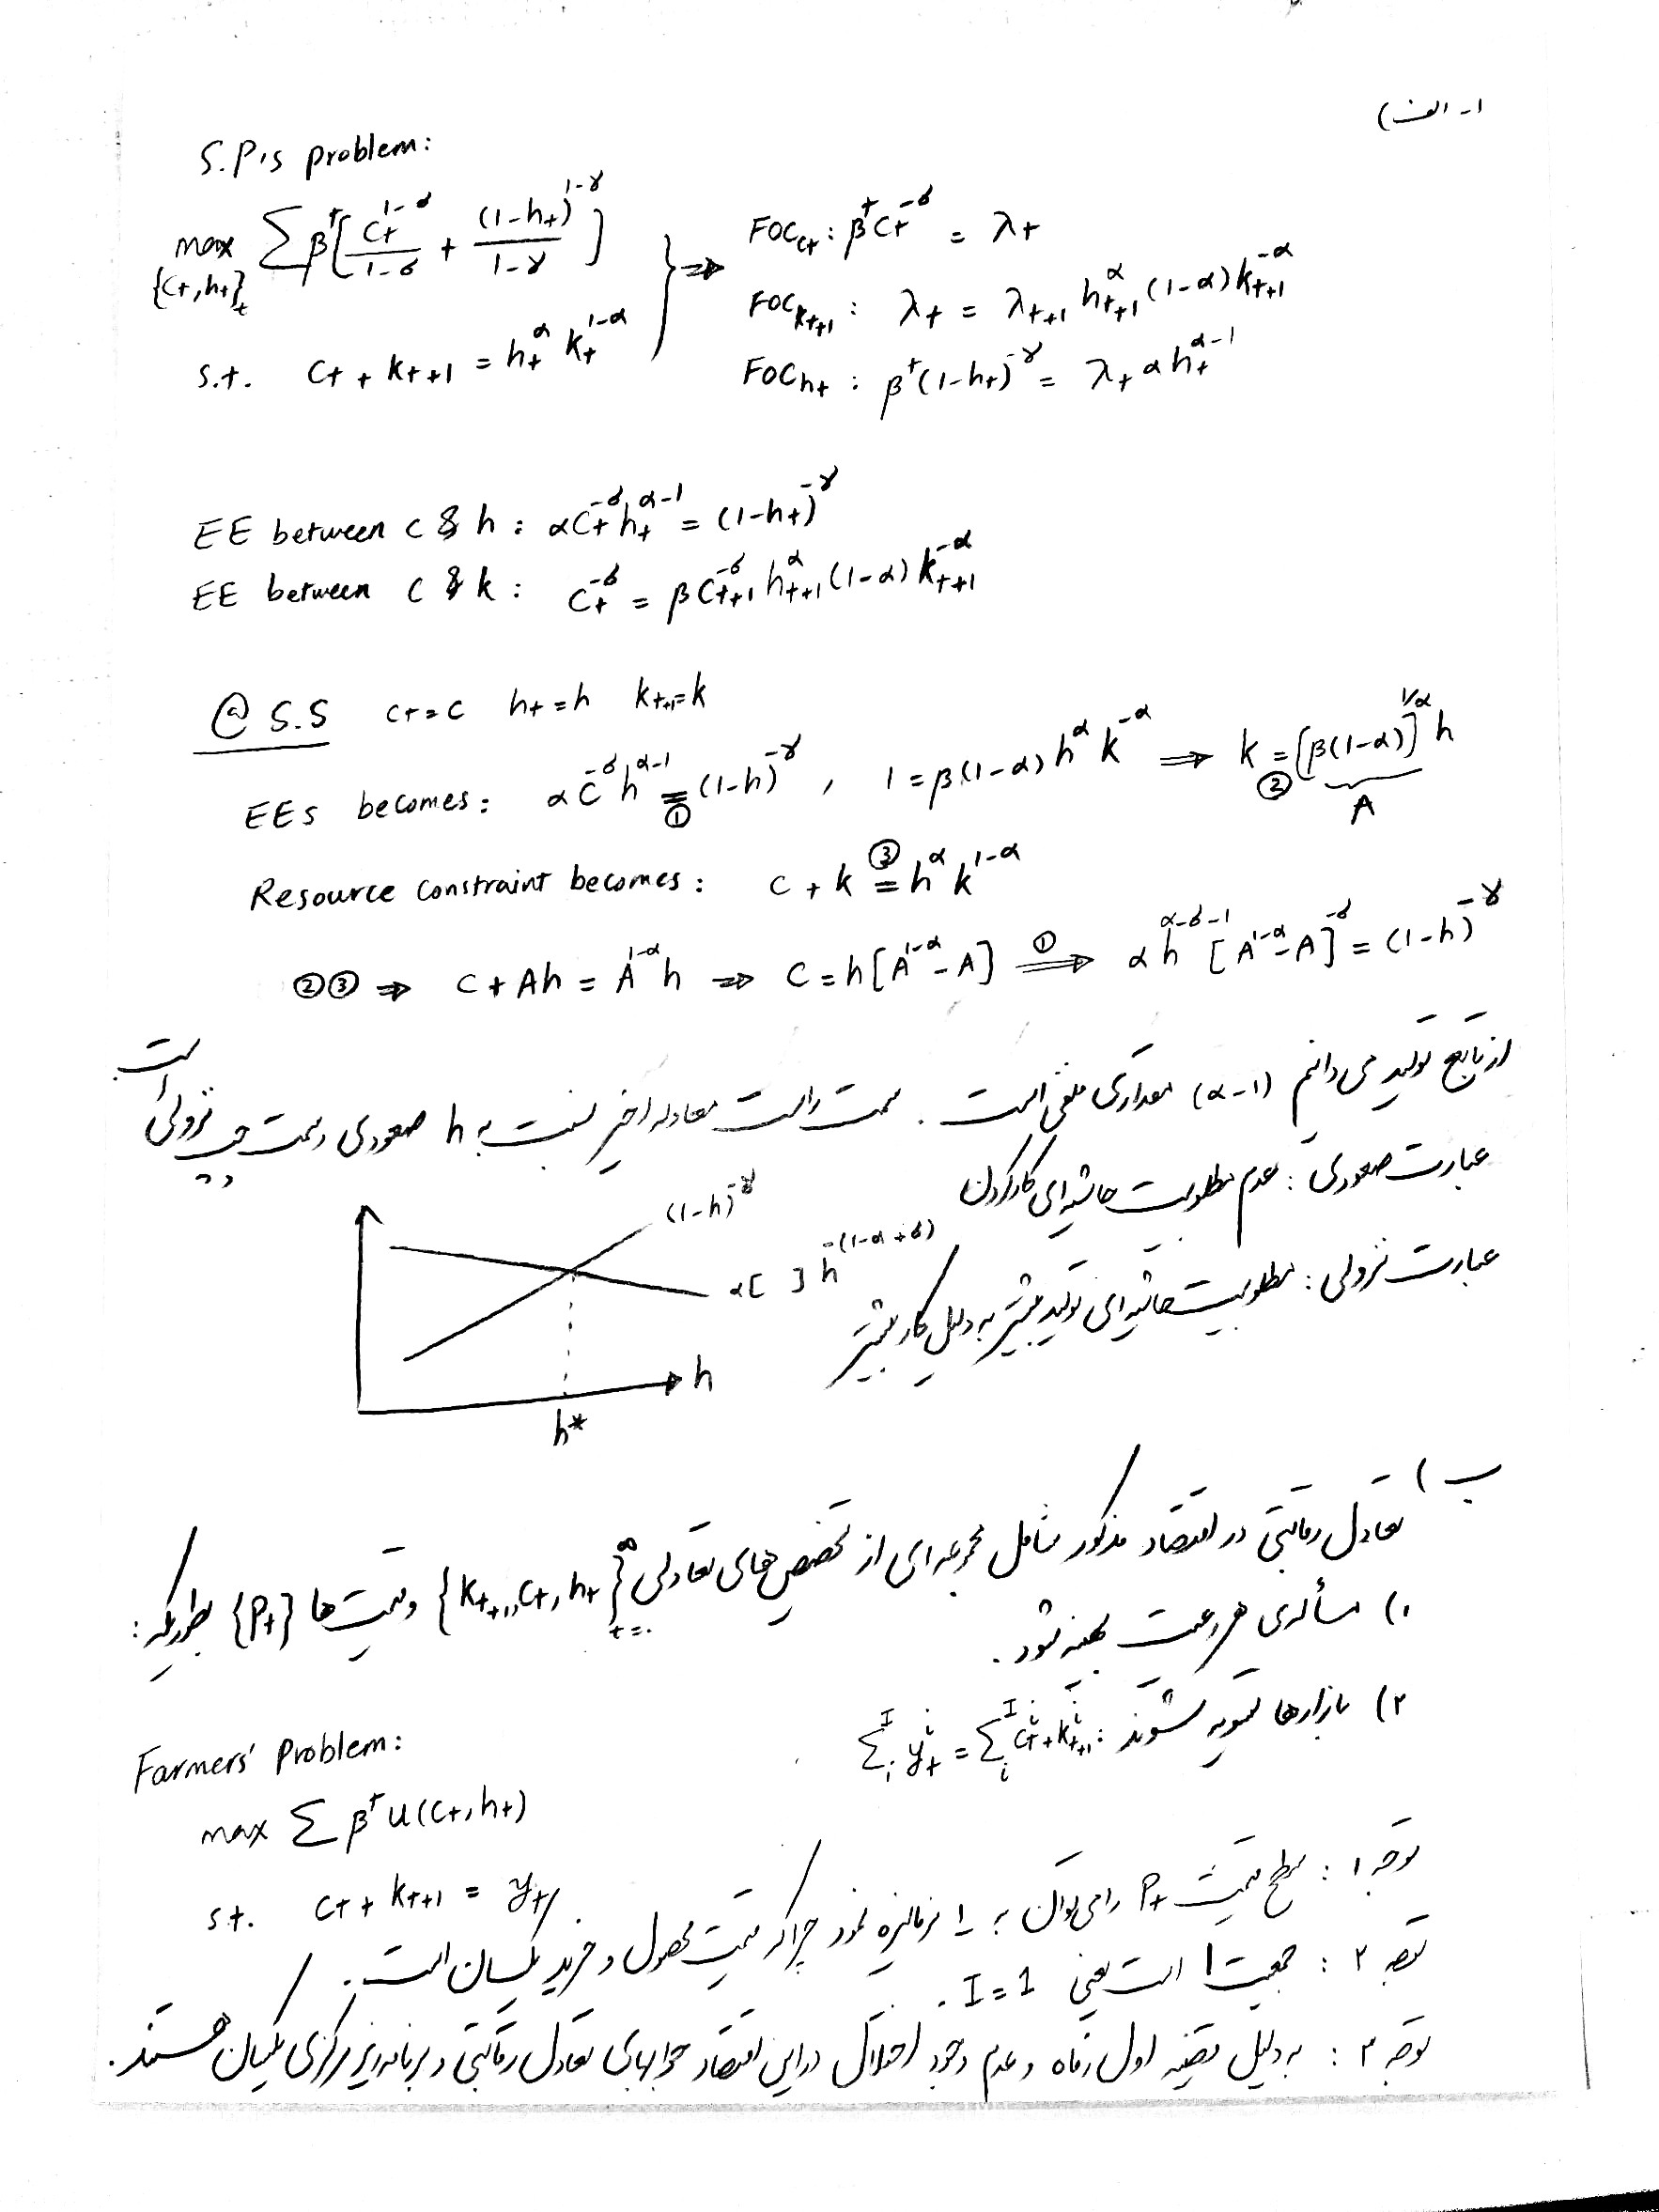 ۱- الف)
S.P's problem:
max_{c_t,h_t}_t Σ β^t [ c_t^{1-σ}/(1-σ) + (1-h_t)^{1-γ}/(1-γ) ]
s.t. c_t + k_{t+1} = h_t^α k_t^{1-α}
⇒ FOC_{c_t}: β^t c_t^{-σ} = λ_t
FOC_{k_{t+1}}: λ_t = λ_{t+1} h_{t+1}^α (1-α) k_{t+1}^{-α}
FOC_{h_t}: β^t (1-h_t)^{-γ} = λ_t α h_t^{α-1}
EE between c & h: α c_t^{-σ} h_t^{α-1} = (1-h_t)^{-γ}
EE between c & k: c_t^{-σ} = β c_{t+1}^{-σ} h_{t+1}^α (1-α) k_{t+1}^{-α}
@ S.S c_t = c h_t = h k_{t+1} = k
EEs becomes: α c^{-σ} h^{α-1} =① (1-h)^{-γ} , 1 = β(1-α) h^α k^{-α} ⇒ k =② [β(1-α)]^{1/α} h
A
Resource constraint becomes: c + k =③ h^α k^{1-α}
②③ ⇒ c + Ah = A^{1-α} h ⇒ c = h[A^{1-α} - A] ①⇒ α h^{α-σ-1} [A^{1-α} - A]^{-σ} = (1-h)^{-γ}
از تابع تولید می دانیم (α-1) مقداری منفی است. سمت راست معادله اخیر نسبت به h صعودی و سمت چپ نزولی است.
عبارت صعودی: عدم مطلوبیت حاشیه‌ای کار کردن
عبارت نزولی: مطلوبیت حاشیه‌ای تولید بیشتر به دلیل کار بیشتر
(1-h)^{-γ}
α[ ] h^{-(1-α+σ)}
h
h*
ب)
تعادل رقابتی در اقتصاد مذکور شامل مجموعه‌ای از تخصیص‌های تعادلی {k_{t+1}, c_t, h_t}_{t=0}^∞ و قیمت ها {P_t} بطوریکه:
۱) مسأله‌ی هر رعیت بهینه شود.
۲) بازارها تسویه شوند: Σ_i^I y_t^i = Σ_i^I c_t^i + k_{t+1}^i
Farmers' Problem:
max Σ β^t u(c_t, h_t)
s.t. c_t + k_{t+1} = y_t
توجه ۱: سطح قیمت P_t را می‌توان به 1 نرمالیزه نمود چرا که قیمت محصول و خرید یکسان است.
توجه ۲: جمعیت 1 است یعنی I = 1.
توجه ۳: به دلیل قضیه اول رفاه و عدم وجود اختلال در این اقتصاد جوابهای تعادل رقابتی و برنامه‌ریز مرکزی یکسان هستند.